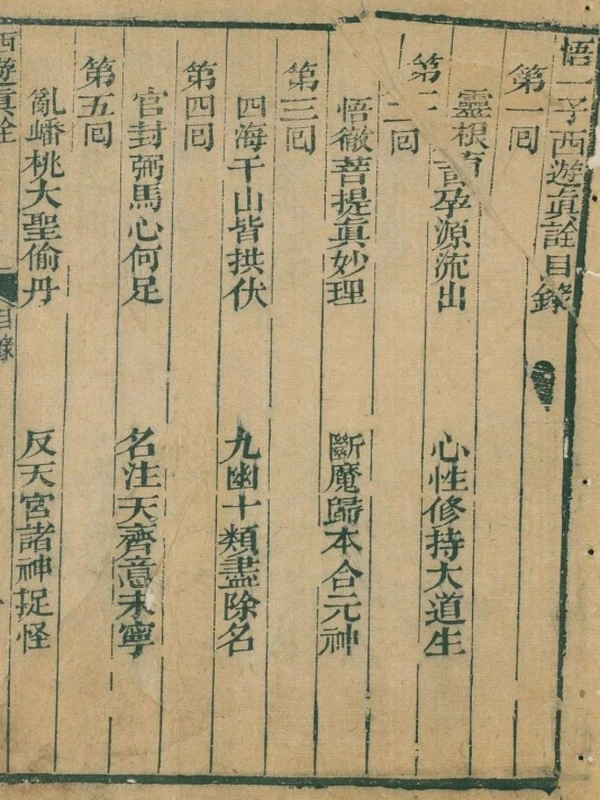 悟一子西遊眞詮目錄
第一囘
靈根育孕源流出　心性修持大道生
第二囘
悟徹菩提眞妙理　斷魔歸本合元神
第三囘
四海千山皆拱伏　九幽十類盡除名
第四囘
官封弼馬心何足　名注天齊意未寧
第五囘
亂蟠桃大聖偷丹　反天宮諸神捉怪
西遊眞詮　目錄